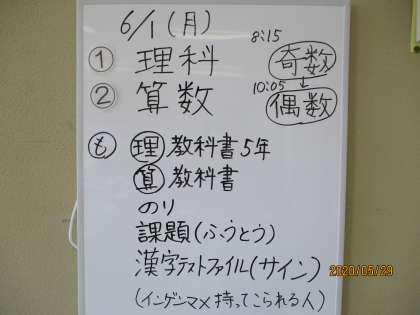 6/1(月)
8:15
① 理科 奇数
10:05 ↓
② 算数 偶数
も 理 教科書5年
算 教科書
のり
課題(ふうとう)
漢字テストファイル(サイン)
2020/05/29
(インゲンマメ持ってこられる人)